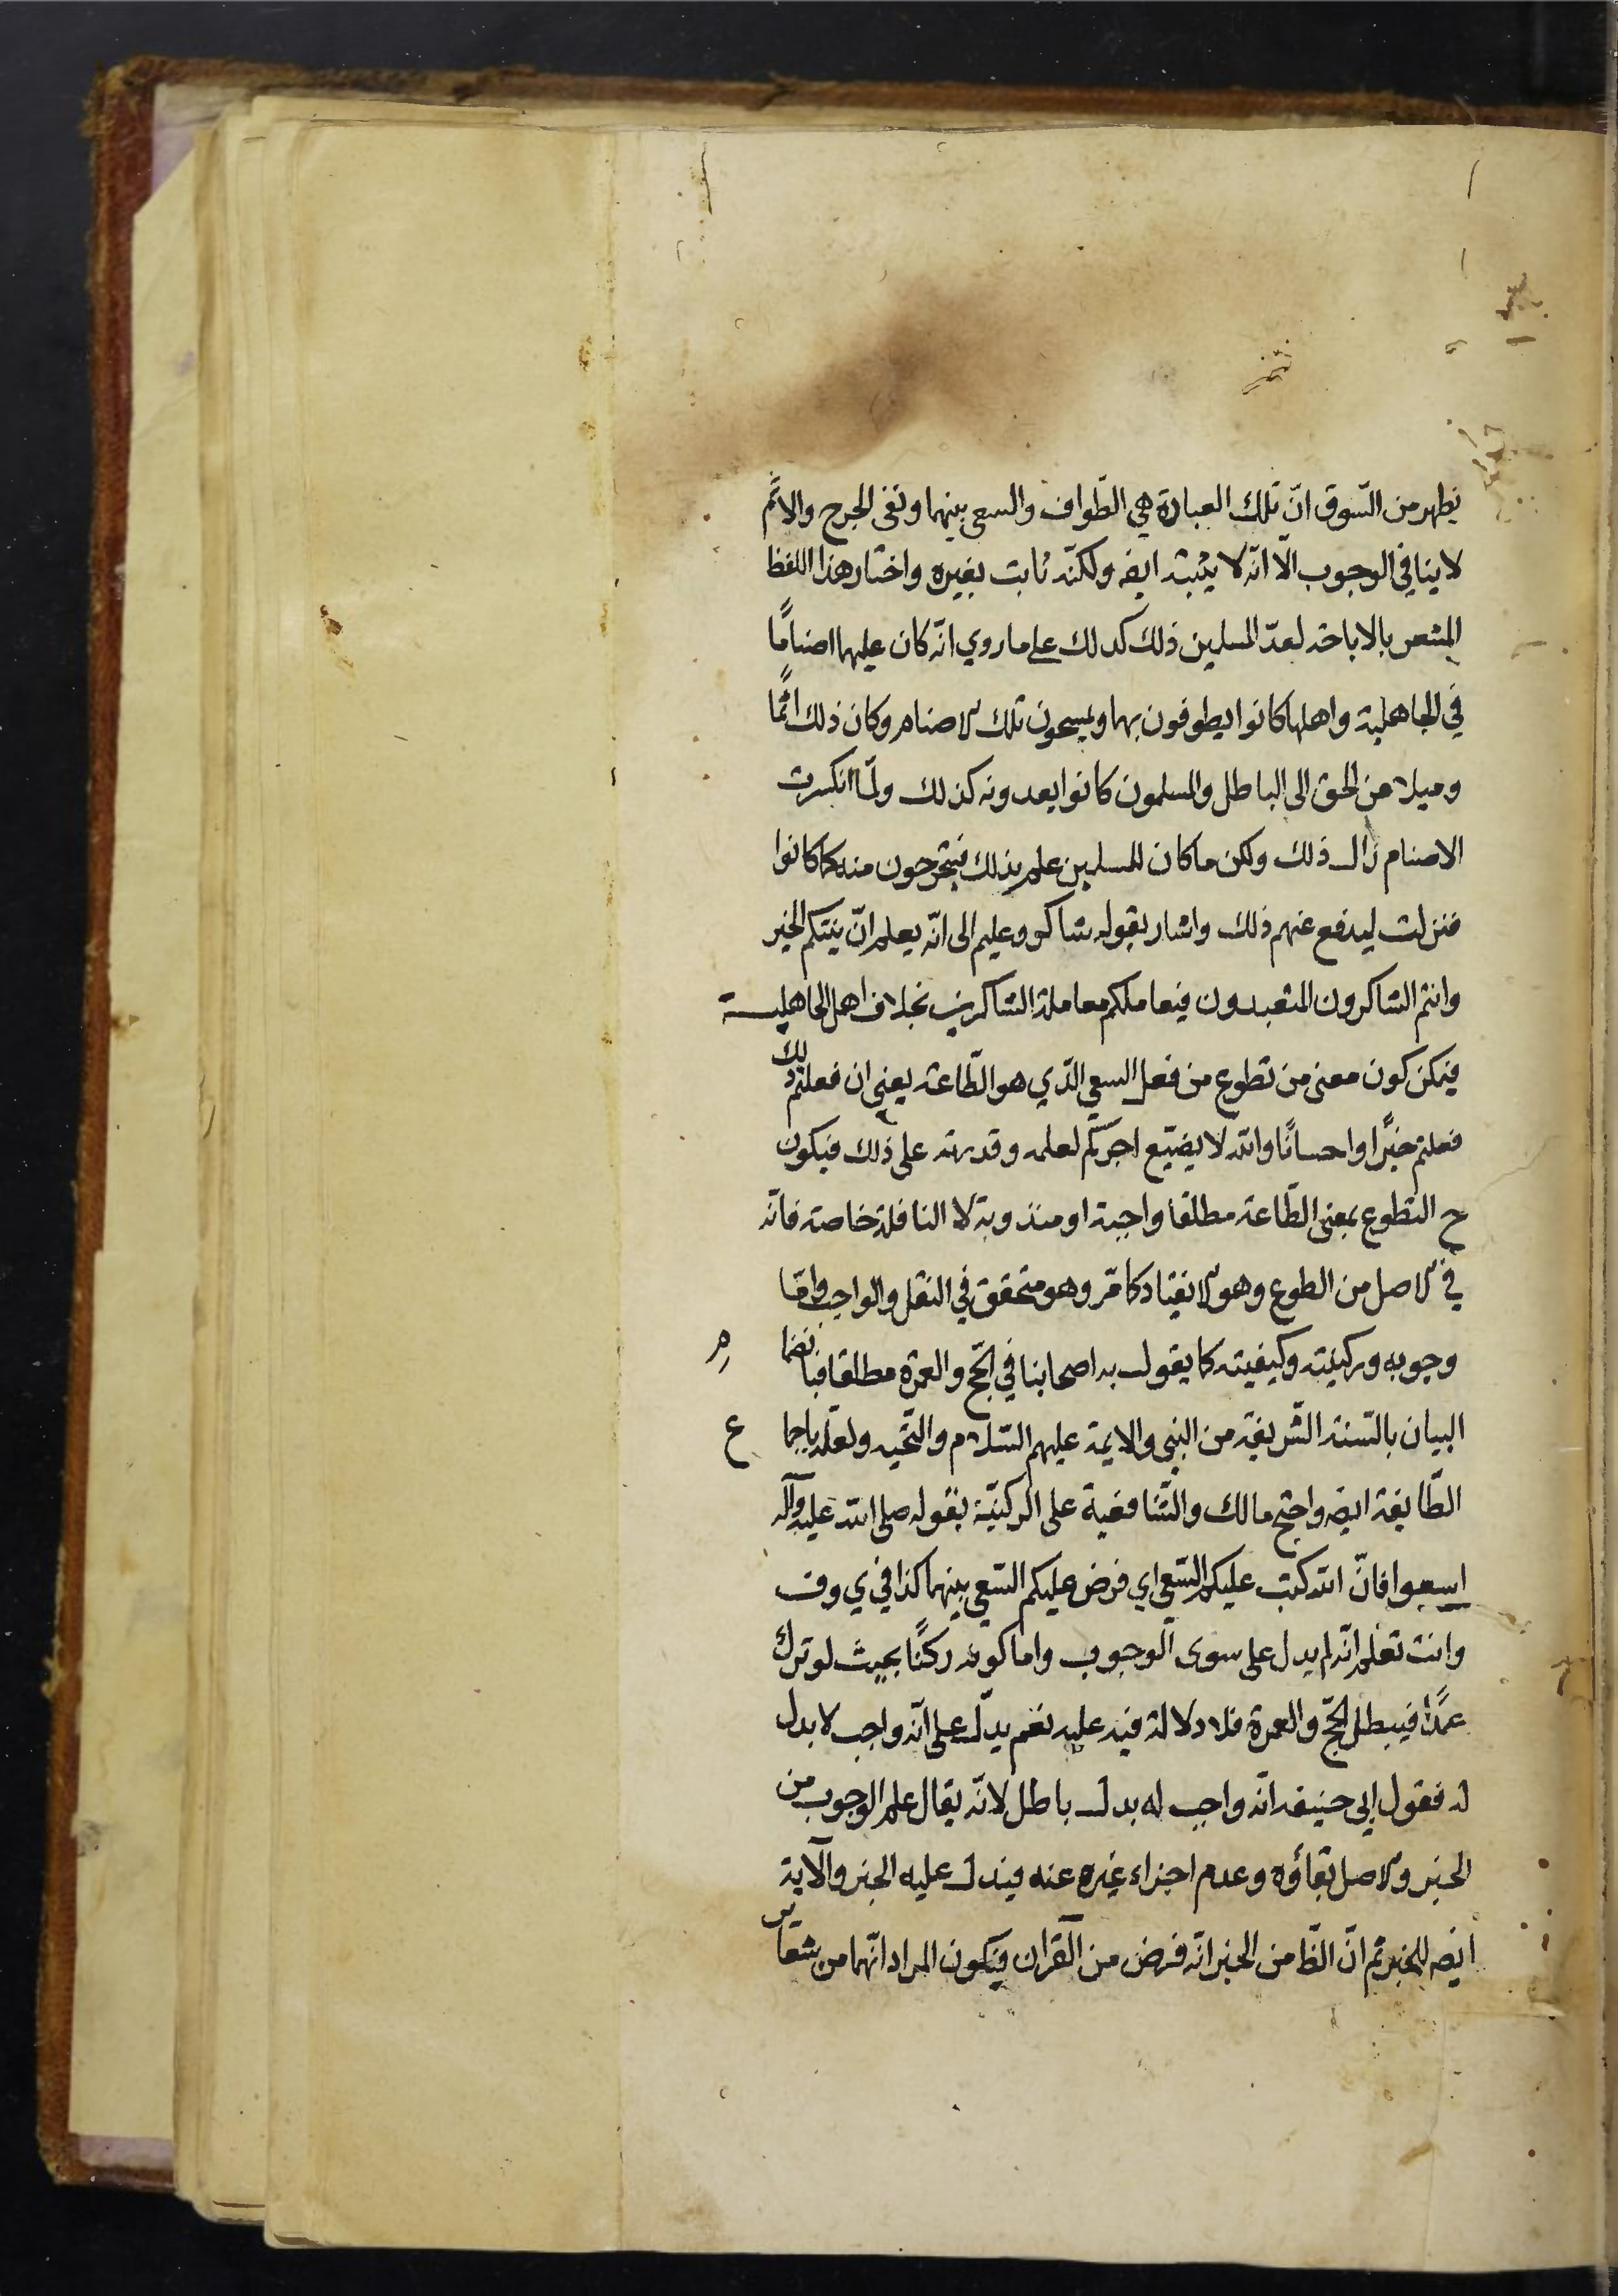 يظهر من السّوق انّ تلك العبادة هي الطّواف والسعى بينهما ونفى الحرج والاثم
لا ينافي الوجوب الّا انّه لا يثبته ايضه ولكنّه ثابت بغيره واختار هذا اللفظ
المشعر بالاباحة لعدّ المسلمين ذلك كذلك على ما روي انّه كان عليهما اصنامًا
في الجاهلية واهلها كانوا يطوفون بهما ويمسحون تلك الاصنام وكان ذلك اثمًا
وميلا من الحق الى الباطل والمسلمون كانوا يعدونه كذلك ولمّا انكسرت
الاصنام زال ذلك ولكن ما كان للمسلمين علم بذلك فيتحرجون منه كما كانوا
فنزلت ليدفع عنهم ذلك واشار بقوله شاكر وعليم الى انّه يعلم انّ نيتكم الخير
وانتم الشاكرون المتعبدون فيعاملكم معاملة الشاكرين بخلاف اهل الجاهلية
فيمكن كون معنى من تطوع من فعل السعي الذي هو الطّاعة يعنى ان فعلتم ذلك
فعلتم خيرًا واحسانًا والله لا يضيّع اجركم لعلمه وقدرته على ذلك فيكون
ح التطوع بمعنى الطّاعة مطلقا واجبة او مندوبة لا النافلة خاصة فانّه
في الاصل من الطوع وهو الانقياد كما مّر وهو متحقق في النفل والواجب وامّا
وجوبه وركنيته وكيفيته كما يقول به اصحابنا في الحّج والعمرة مطلقا فبانضما م
البيان بالسّنة الشّريفة من النبي والايمة عليهم السّلام والتّحيه ولعلّه باجما ع
الطّايفة ايضه واحتج مالك والشّافعية على الركنيّة بقوله صلى الله عليه وآله
اسعوا فانّ الله كتب عليكم السّعي اي فرض عليكم السّعي بينهما كذا في ي وف
وانت تعلم انّه لم يدل على سوى الوجوب واما كونه ركنًا بحيث لو ترك
عمدًا فيبطل الحّج والعمرة فلا دلالة فيه عليه نعم يدّل على انّه واجب لا بدل
له فقول ابي حنيفه انّه واجب له بدل باطل لانّه يقال علم الوجوب من
الخبر والاصل بقاؤه وعدم اجزاء غيره عنه فيدل عليه الخبر والآية
ايضه للخبر ثم انّ الظّ من الخبر انّه فرض من القرآن فيكون المراد انّهما من شعاير